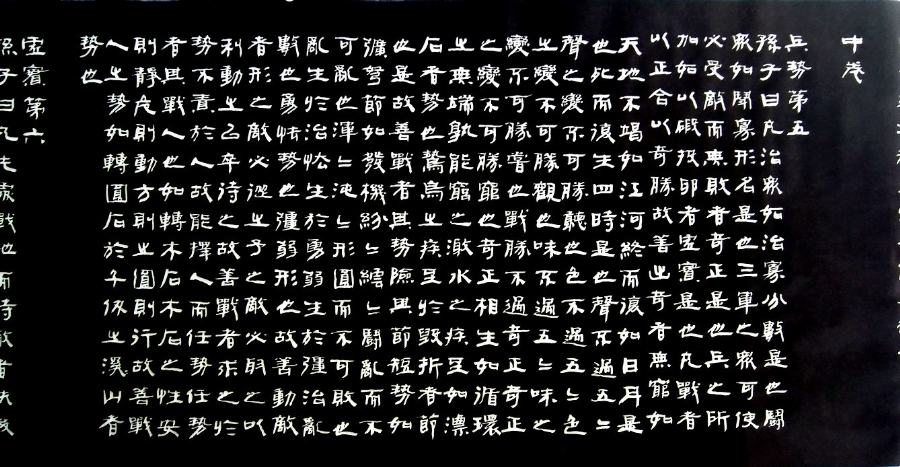 中卷
兵勢第五
孫子曰凡治衆如治寡分數是也鬪
衆如鬪寡形名是也三軍之衆可使
必受敵而無敗者奇正是也兵之所
加如以碬投卵者虛實是也凡戰者
以正合以奇勝故善出奇者無窮如
天地不竭如江河終而復如日月是
也死而復生四時是也聲不過五〻
聲之變不可勝聽也色不過五〻色
之變不可勝觀也味不過五〻味之
變不可勝嘗也戰勝不過奇正奇正
之變不可勝窮也奇正相生如循環
之無端孰能窮之激水之疾至如漂
石者勢也鷙鳥之疾至於毀折者節
也是故善戰者其勢險其節短勢如
彍弩節如發機紛〻紜〻鬪亂而不
可亂也渾〻沌〻形圓而不可敗也
亂生於治怯生於勇弱生於彊治亂
數也勇怯勢也彊弱形也故善動敵
者形之敵必從之予之敵必取之以
利動之以卒待之故善戰者求之於
勢不責於人故能擇人而任勢任勢
者其戰人也如轉木石木石之性安
則靜危則動方則止圓則行故善戰
人之勢如轉圓石於千仞之溪山者
勢也
虛實第六
孫子曰凡先處戰地而待敵者佚後